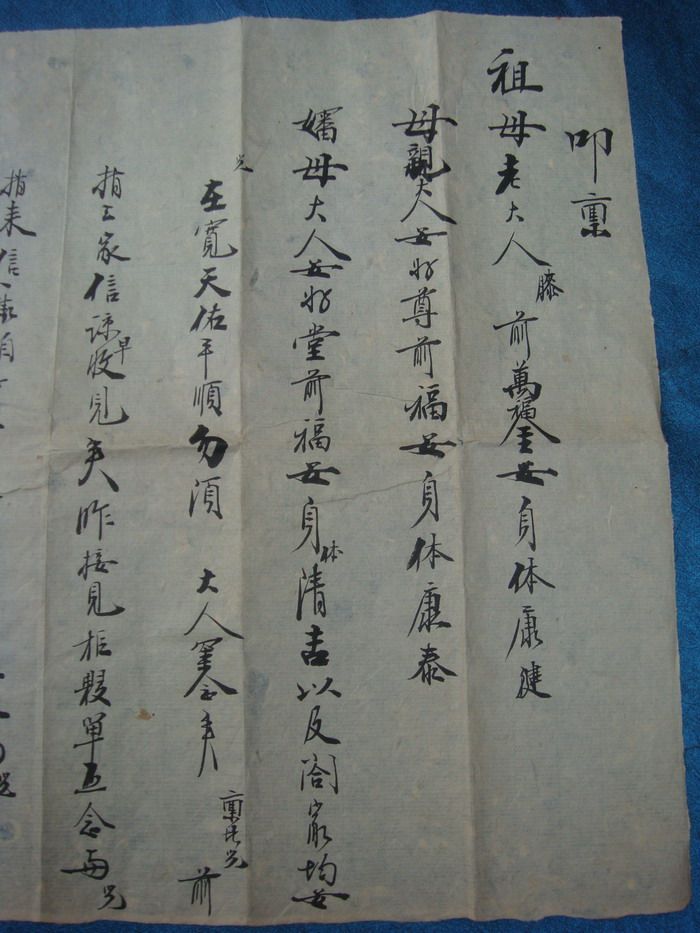 叩禀
祖母老大人膝前萬福金安身体康健
母親大人安好尊前福安身体康泰
嬸母大人安好堂前福安身体清吉以及閤家均安
兒在寬天佑平順勿須大人罣念 前禀 兒前
捎之家信諒早收見矣昨接見柜 單 念 兒
捎来信